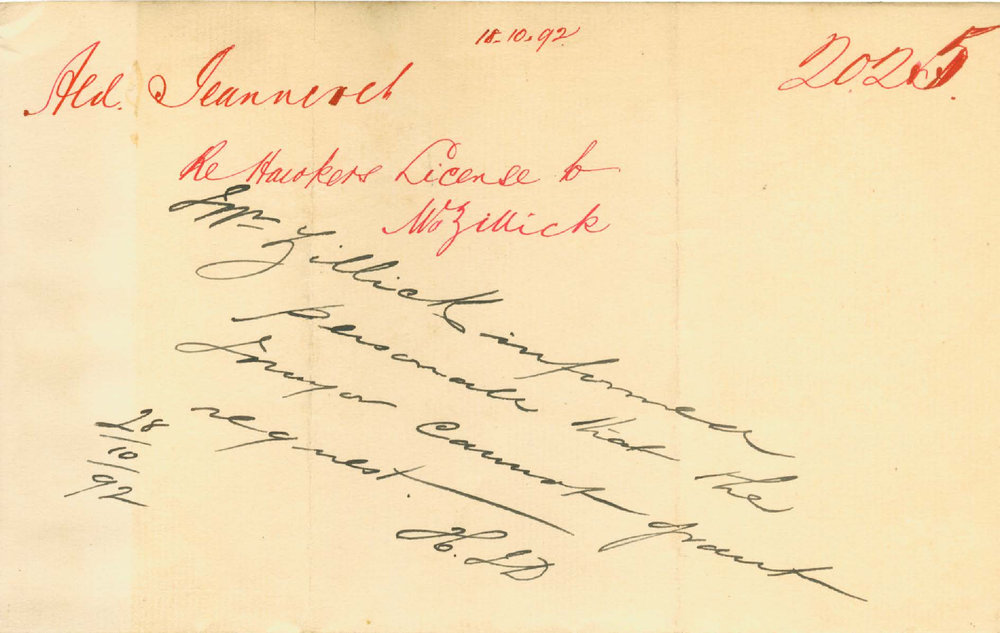 18.10.92
2025
Ald. Jeanneret
Re Hawkers License to
Wo Zillick
Mr Zillick informed
personally that the
Mayor cannot grant
request.
28/10/92
H. J D